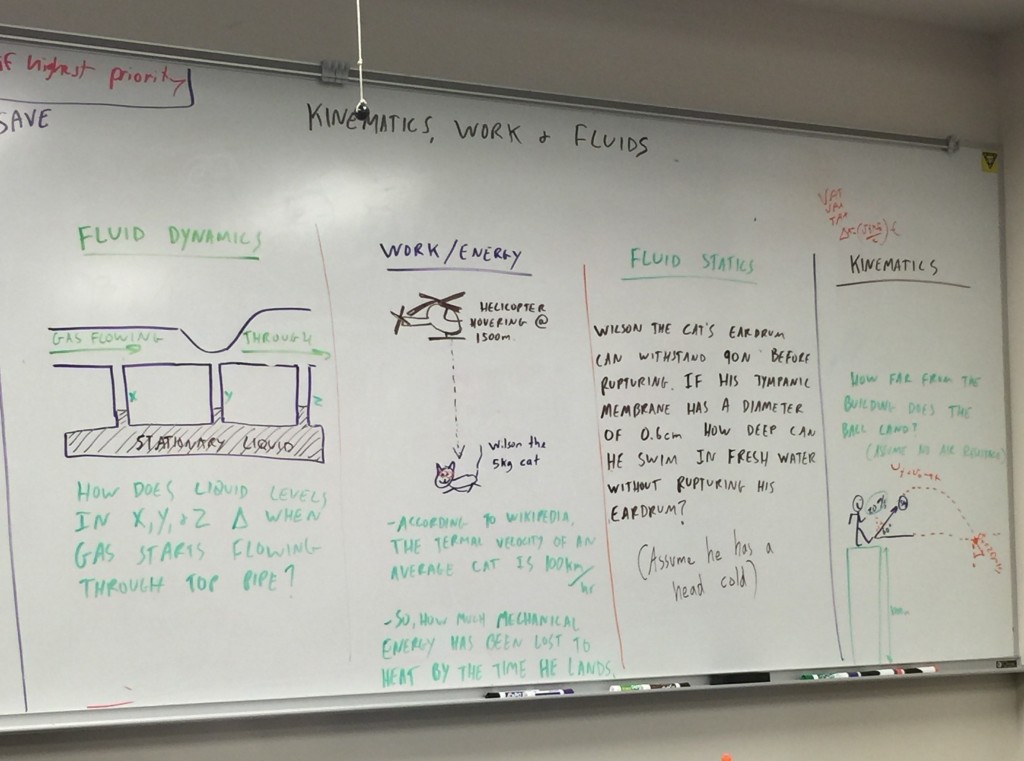 of highest priority
SAVE
KINEMATICS, WORK & FLUIDS
FLUID DYNAMICS
GAS FLOWING
THROUGH
X
Y
Z
STATIONARY LIQUID
HOW DOES LIQUID LEVELS
IN X, Y, & Z Δ WHEN
GAS STARTS FLOWING
THROUGH TOP PIPE?
WORK/ENERGY
HELICOPTER
HOVERING @
1500m
Wilson the
5kg cat
-ACCORDING TO WIKIPEDIA,
THE TERMAL VELOCITY OF AN
AVERAGE CAT IS 100km/hr
-SO, HOW MUCH MECHANICAL
ENERGY HAS BEEN LOST TO
HEAT BY THE TIME HE LANDS.
FLUID STATICS
WILSON THE CAT'S EARDRUM
CAN WITHSTAND 90N BEFORE
RUPTURING. IF HIS TYMPANIC
MEMBRANE HAS A DIAMETER
OF 0.6cm HOW DEEP CAN
HE SWIM IN FRESH WATER
WITHOUT RUPTURING HIS
EARDRUM?
(Assume he has a
head cold)
KINEMATICS
HOW FAR FROM THE
BUILDING DOES THE
BALL LAND?
(ASSUME NO AIR RESISTANCE)